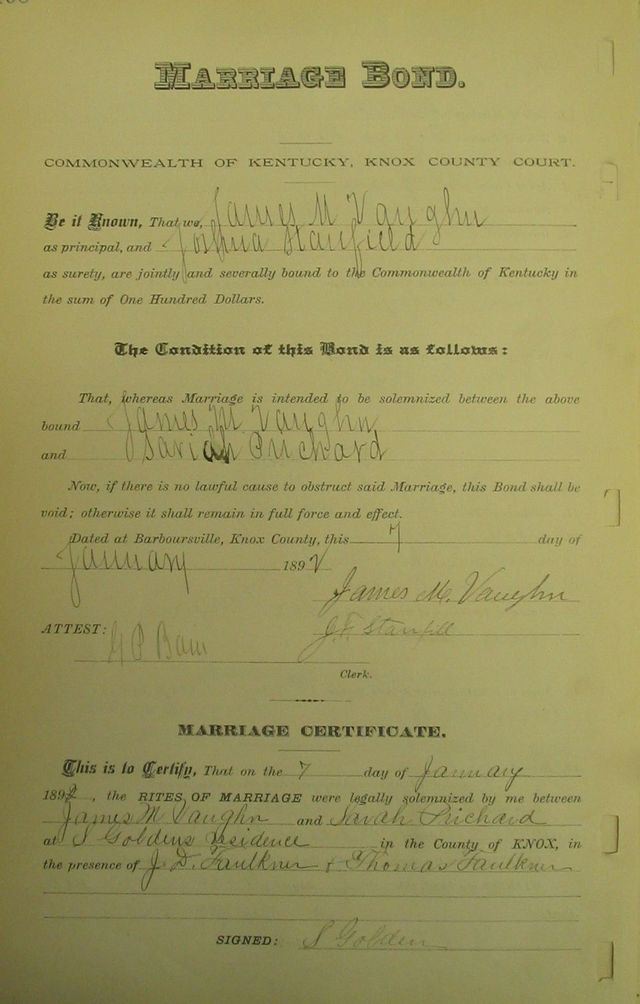 MARRIAGE BOND.
COMMONWEALTH OF KENTUCKY, KNOX COUNTY COURT.
Be it Known, That we, James M Vaughn
as principal, and Joshua Stanfield
as surety, are jointly and severally bound to the Commonwealth of Kentucky in
the sum of One Hundred Dollars.
The Condition of this Bond is as follows:
That, whereas Marriage is intended to be solemnized between the above
bound James M Vaughn
and Sariah Prichard
Now, if there is no lawful cause to obstruct said Marriage, this Bond shall be
void; otherwise it shall remain in full force and effect.
Dated at Barboursville, Knox County, this 7 day of
January 1892
James M. Vaughn
ATTEST: J.F. Stanfill
G P Bain
Clerk.
MARRIAGE CERTIFICATE.
This is to Certify, That on the 7 day of January
1892, the RITES OF MARRIAGE were legally solemnized by me between
James M Vaughn and Sarah Prichard
at S Goldens residence in the County of KNOX, in
the presence of J. D. Faulkner & Thomas Faulkner
SIGNED: S Golden